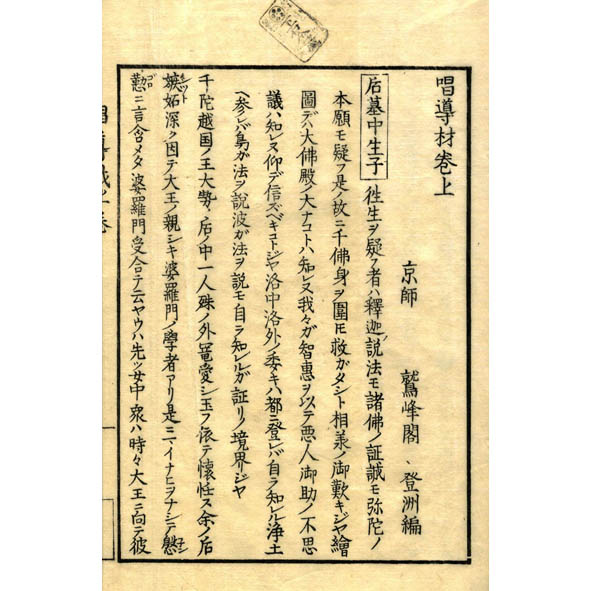 唱導材巻上
京師 鷲峰閣、登洲編
后墓中生子 徃生ヲ疑フ者ハ釋迦ノ説法モ諸佛ノ証誠モ弥陀ノ
本願モ疑フ是ノ故ニ千佛身ヲ圍ㇺ𪜈救ガタシト相羨ノ御歎キジヤ繪
圖デハ大佛殿ノ大ナコトハ知レヌ我々ガ智惠ヲ以テ悪人御助ノ不思
議ハ知レヌ仰デ信ズベキコトジヤ洛中洛外ノ委キハ都ニ登レバ自ラ知レル浄土
ヘ参レバ鳥ガ法ヲ説波ガ法ヲ説モ自ラ知レルガ証リノ境界ジヤ
千陀越国ノ王大勢ノ后ノ中一人殊ノ外寵愛シ玉フ依テ懐妊ス余ノ后
嫉妬深ク因テ大王ノ親シキ婆羅門ノ學者アリ是ニイナヒヲナシテ慇
懃ニ言含メタ婆羅門受合テ云ヤウハ先ッ女中衆ハ時々大王ニ向テ彼